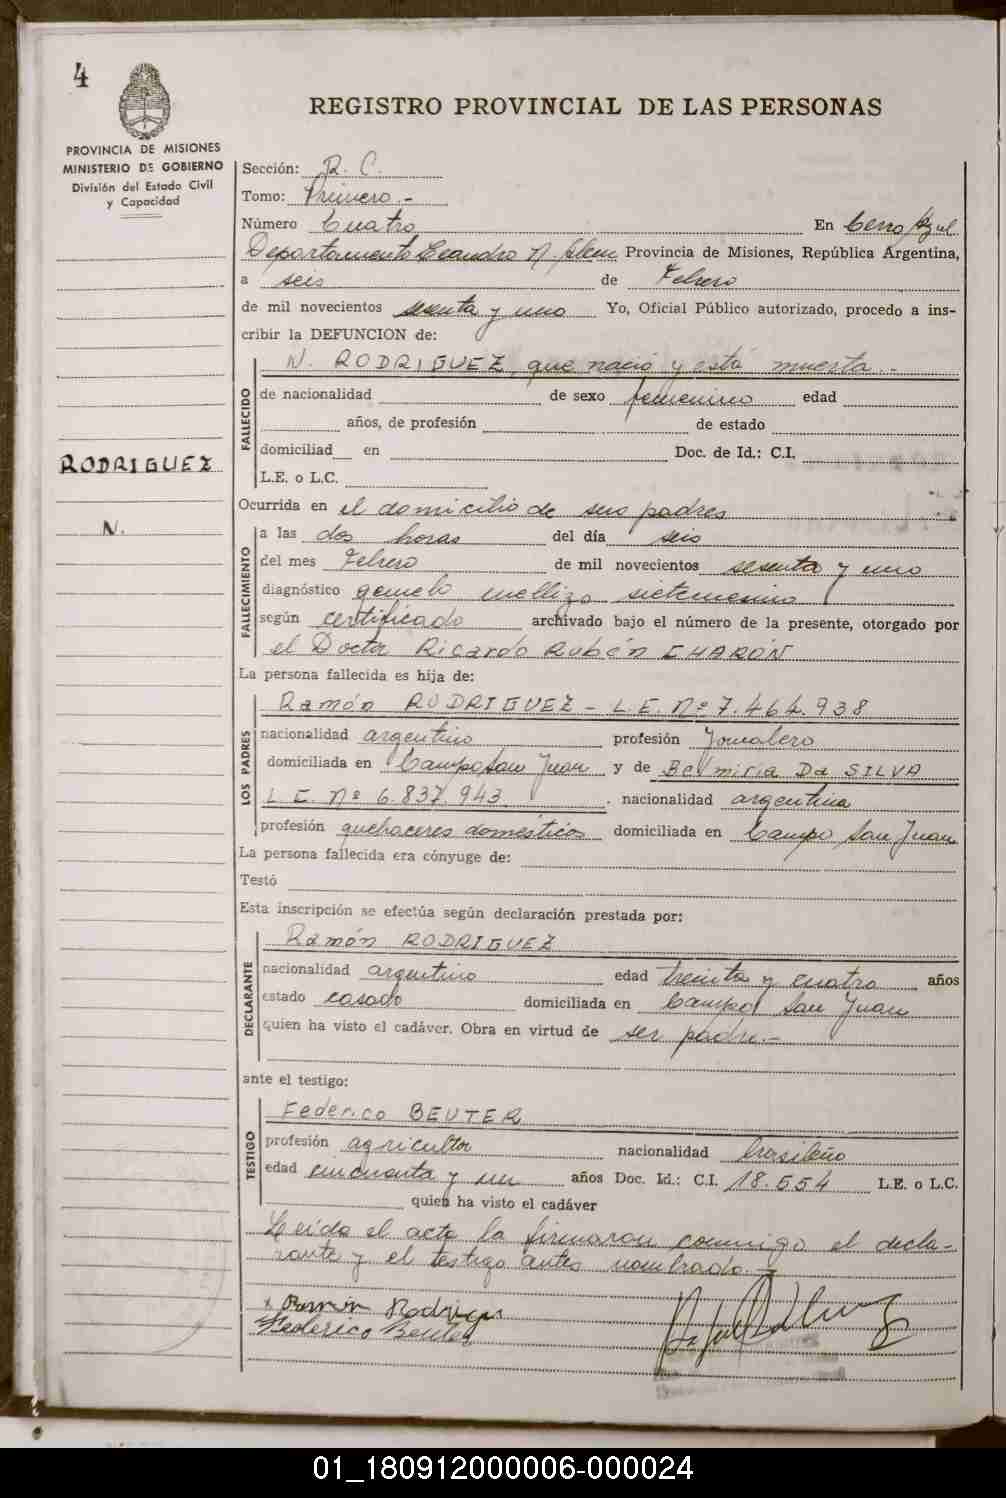 4
REGISTRO PROVINCIAL DE LAS PERSONAS
PROVINCIA DE MISIONES
MINISTERIO DE GOBIERNO
División del Estado Civil
y Capacidad
RODRIGUEZ
N.
Sección: R. C.
Tomo: Primero.-
Número Cuatro En Cerro Azul
Departamento Leandro N. Alem Provincia de Misiones, República Argentina,
a seis de Febrero
de mil novecientos sesenta y uno Yo, Oficial Público autorizado, procedo a ins-
cribir la DEFUNCION de:
FALLECIDO
N. RODRIGUEZ, que nació y está muerta.-
de nacionalidad de sexo femenino edad
años, de profesión de estado
domiciliad en Doc. de Id.: C.I.
L.E. o L.C.
Ocurrida en el domicilio de sus padres
FALLECIMIENTO
a las dos horas del día seis
del mes Febrero de mil novecientos sesenta y uno
diagnóstico gemelo mellizo sietemesino
según certificado archivado bajo el número de la presente, otorgado por
el Doctor Ricardo Rubén CHARÓN
La persona fallecida es hija de:
LOS PADRES
Ramón RODRIGUEZ - L.E. Nº 7.464.938
nacionalidad argentino profesión Jornalero
domiciliada en Campo San Juan y de Belmiria Da SILVA
L.E. Nº 6.837.943. nacionalidad argentina
profesión quehaceres domésticos domiciliada en Campo San Juan
La persona fallecida era cónyuge de:
Testó
Esta inscripción se efectúa según declaración prestada por:
DECLARANTE
Ramón RODRIGUEZ
nacionalidad argentino edad treinta y cuatro años
estado casado domiciliada en Campo San Juan
quien ha visto el cadáver. Obra en virtud de ser padre.-
ante el testigo:
TESTIGO
Federico BEUTER
profesión agricultor nacionalidad brasileño
edad cincuenta y un años Doc. Id.: C.I. 18.554 L.E. o L.C.
quien ha visto el cadáver
Leída el acta la firmaron conmigo el decla-
rante y el testigo antes nombrado.-
x Ramon Rodriguez
Federico Beuter
01_180912000006-000024